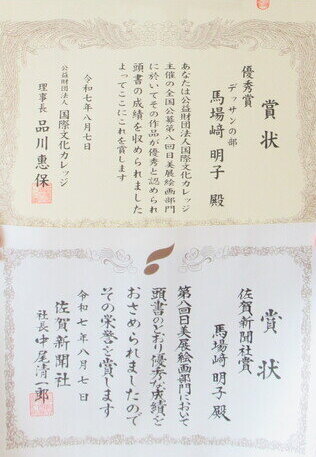 賞状
優秀賞
デッサンの部
馬場﨑 明子 殿
あなたは公益財団法人国際文化カレッジ
主催の全国公募第八回日美展絵画部門
に於いてその作品が優秀と認められ
頭書の成績を収められました
よってここにこれを賞します
令和七年八月七日
公益財団法人 国際文化カレッジ
理事長 品川惠保
賞状
佐賀新聞社賞
馬場﨑 明子 殿
第八回日美展絵画部門において
頭書のとおり優秀な成績を
おさめられましたので
その栄誉を賞します
令和七年八月七日
佐賀新聞社
社長 中尾清一郎